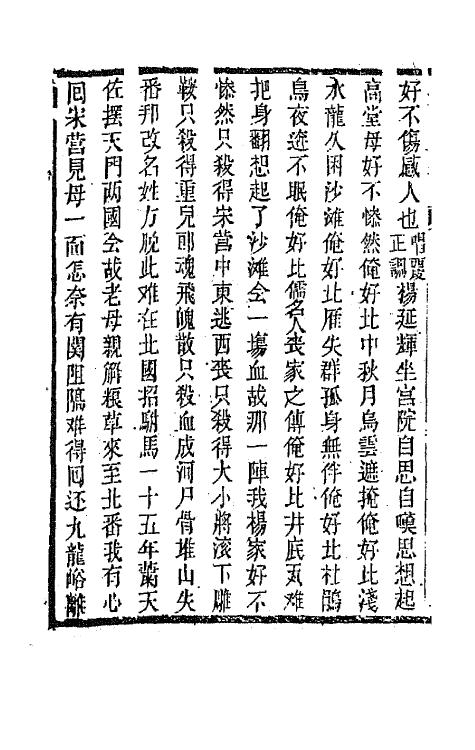 好不傷感人也唱慢正調楊延輝坐宮院自思自嘆思想起
高堂母好不慘然俺好比中秋月烏雲遮掩俺好比淺
水龍久困沙滩俺好比雁失群孤身無伴俺好比杜鵑
鳥夜迯不眠俺好比儒名人喪家之傳俺好比井底瓦难
把身翻想起了沙滩会一塲血战那一陣我楊家好不
慘然只殺得宋营中東逃西喪只殺得大小將滚下雕
鞍只殺得重兒郎魂飛魄散只殺血成河尸骨堆山失
番邦改名姓方脫此难在北國招駙馬一十五年蕭天
佐摆天門两國会战老母親解粮草來至北番我有心
囘宋营見母一面怎奈有関阻隔难得囘还九龍峪離